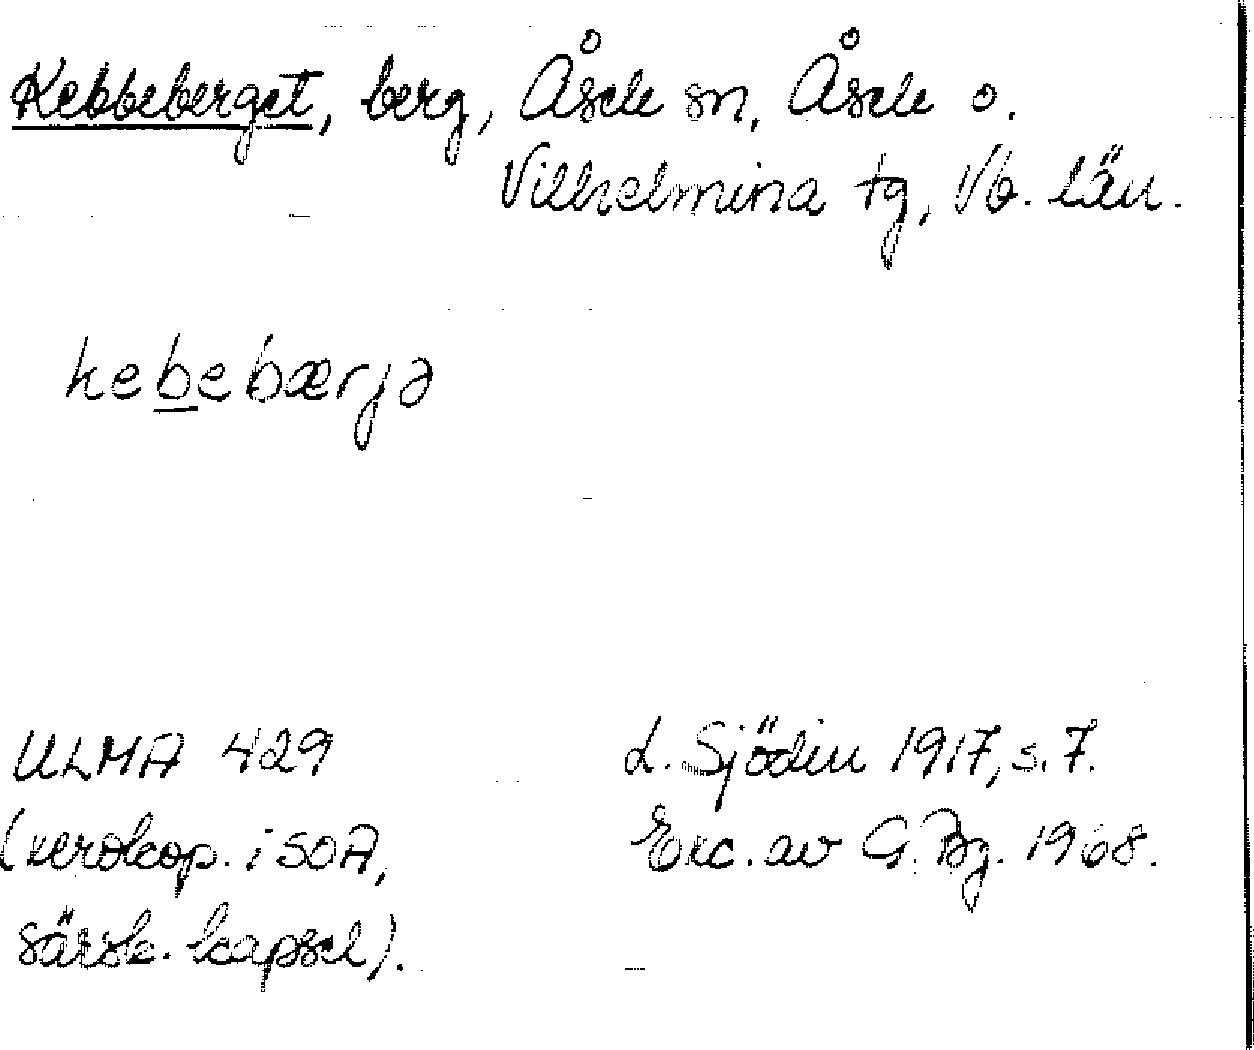 Kebbeberget, berg, Åsele sn, Åsele o.
Vilhelmina tg, Vb. län.
kebebærjə
ULMA 429
(xerokop. i SOA,
särsk. kapsel).
L. Sjödin 1917, s. 7.
Exc. av G. Bg. 1968.